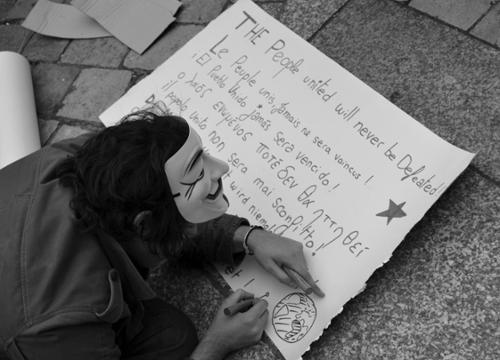 THE People united will never be Defeated
Le Peuple unis, jamais ne sera vaincus !
¡El Pueblo Unido jamás sera vencido!
Ο λαός ενωμένος ποτέ δεν θα ηττηθεί
il popolo unito non sera mai sconfitto!
wird niemals